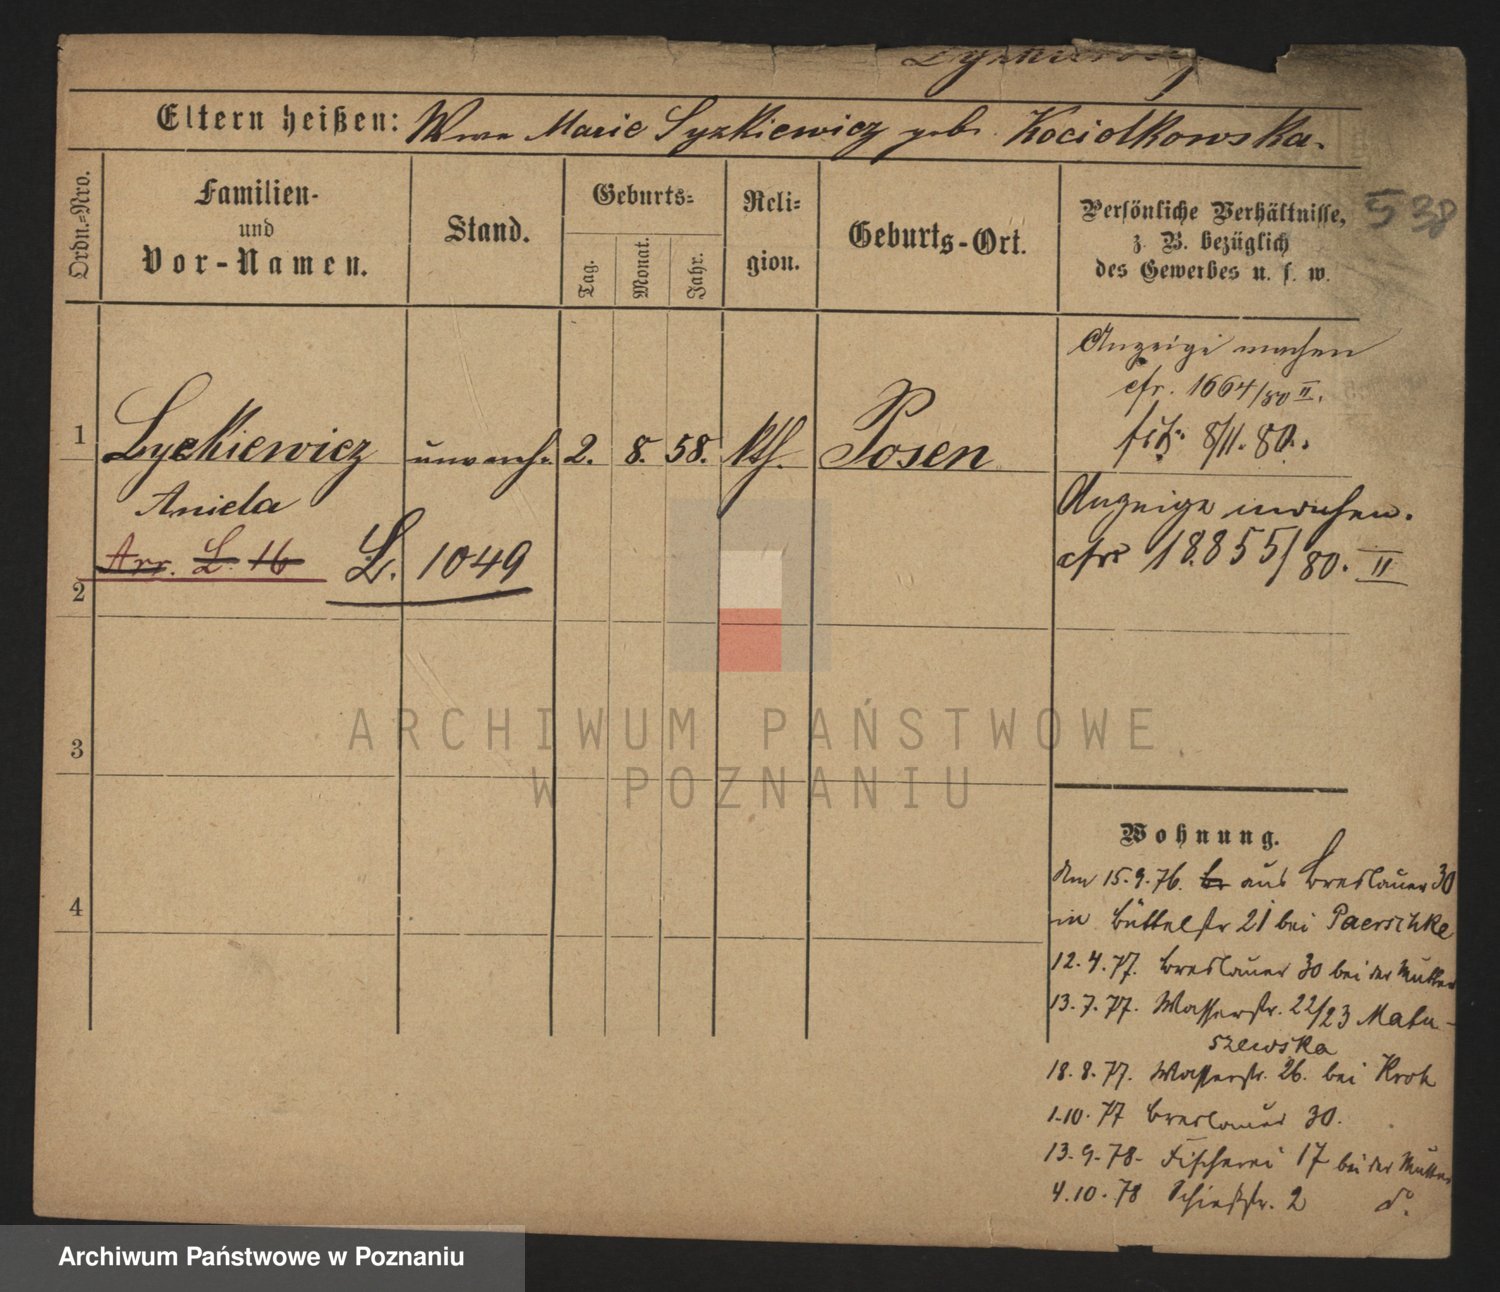 Eltern heißen: Wwe Marie Lyzkiewicz geb. Kociolkowska.
538
Ordn.-Nro.
Familien- und Vor-Namen.
Stand.
Geburts-
Tag.
Monat.
Jahr.
Religion.
Geburts-Ort.
Persönliche Verhältnisse,
z. B. bezüglich
des Gewerbes u. s. w.
Anzeige machen
cfr. 1664/80 II.
8/11. 80.
1 Lyzkiewicz unverh. 2. 8. 58. kth. Posen
Aniela
Arr. L. 16 L. 1049
Anzeige machen.
cfr 18855/80. II
2
3
4
ARCHIWUM PAŃSTWOWE
W POZNANIU
Wohnung.
Am 15.9.76. br aus Breslauer 30
in Büttelstr 21 bei Paerschke
12.4.77. Breslauer 30 bei der Mutter
13.7.77. Wasserstr. 22/23 Matu-
szewska
18.8.77. Wasserstr. 26. bei Kroh
1.10.77 Breslauer 30.
13.9.78. Fischerei 17 bei der Mutter
4.10.78 Schießstr. 2 d.
Archiwum Państwowe w Poznaniu